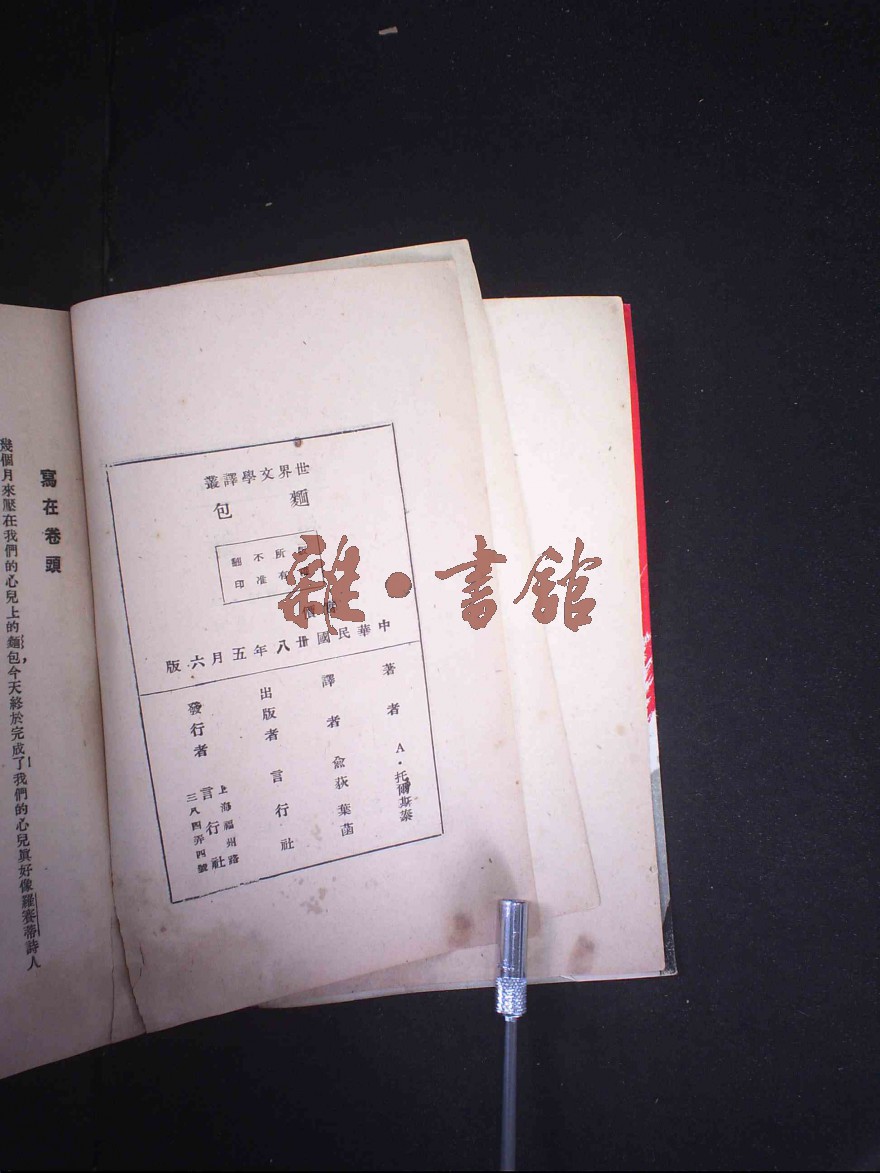 世界文學譯叢
麵包
所有
不准
翻印
中華民國卅八年五月六版
著者 A·托爾斯泰
譯者 俞荻 葉菡
出版者 言行社
發行者 言行社
上海福州路
三八四弄四號
寫在卷頭
幾個月來壓在我們的心兒上的麵包，今天終於完成了！我們的心兒眞好像羅賽蒂詩人
雜·書館